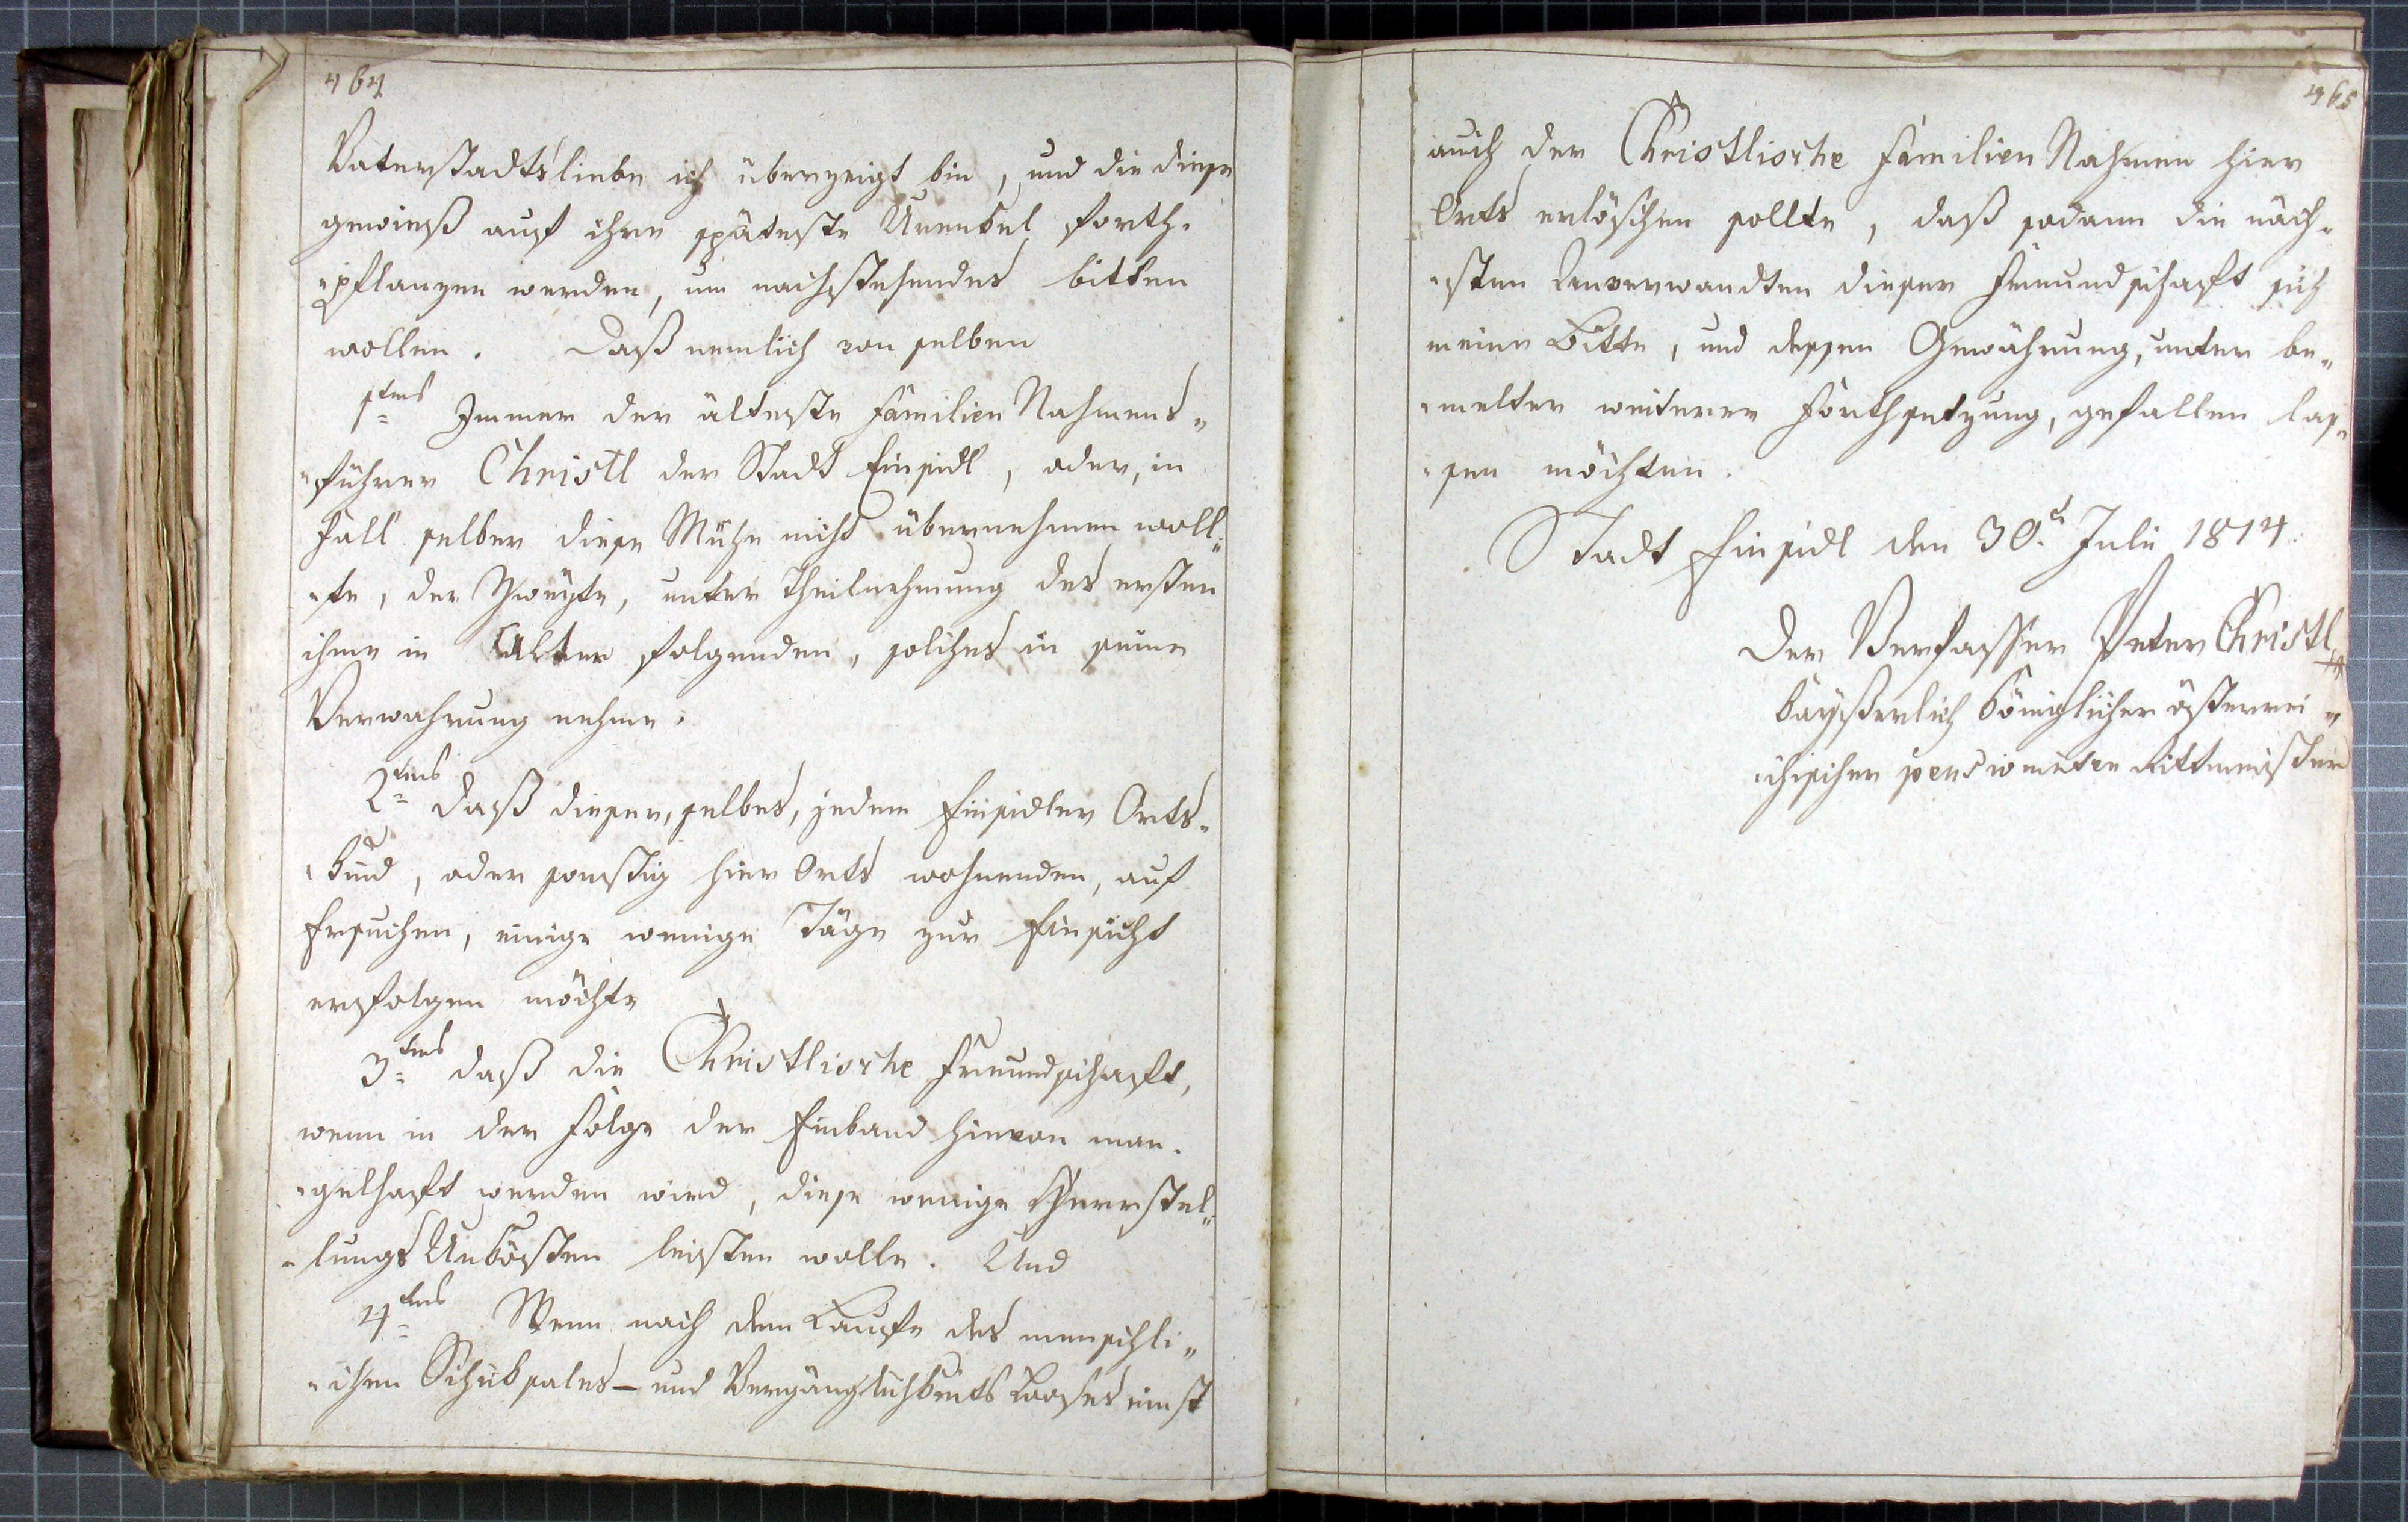 464
Vaterstadtsliebe ich überzeigt bin, und die diese
gewieß auf ihre späteste Urenkel forth-
"pflanzen werden, um nachstehendes bitten
wollen. Daß nemlich von selben
1tens Immer der älteste Familien Nahmens„
„führer Christl der Stadt Einsidl, oder, in
Fall selber diese Mühe nicht übernehmen woll„
„te, der Zweyte, unter Theilnehmung des ersten
ihme in Alter folgenden, solches in seine
Verwahrung nehme.
2tens daß dieser, selbes, jedem Einsidler Orts„
„kind, oder sonstig hier Orts wohnenden, auf
Ersuchen, einige wenige Täge zur Einsicht
erfolgen möchte
3tens daß die Christlische Freundschaft,
wenn in der Folge der Einband hievon man„
„gelhaft werden wird, diese wenige Herrstel„
„lungs Unkösten leisten wolle. Und
4tens Wenn nach dem Laufe des menschli„
„chen Schiksales- und Vergänglichkeits Looses einst
465
auch der Christlische Familien Nahmen hier
Orts erlöschen sollte, daß sodann die näch„
„sten Anverwandten dieser Freundschaft sich
meine Bitte, und dessen Gewährung, unter be„
„melter weiterer Forthsetzung, gefallen las„
„sen möchten.
Stadt Einsidl den 30t. Julii 1814.
Der Verfasser Peter Christl
kaÿßerlich königlicher österrei„
„chischer pensionirter Rittmeister